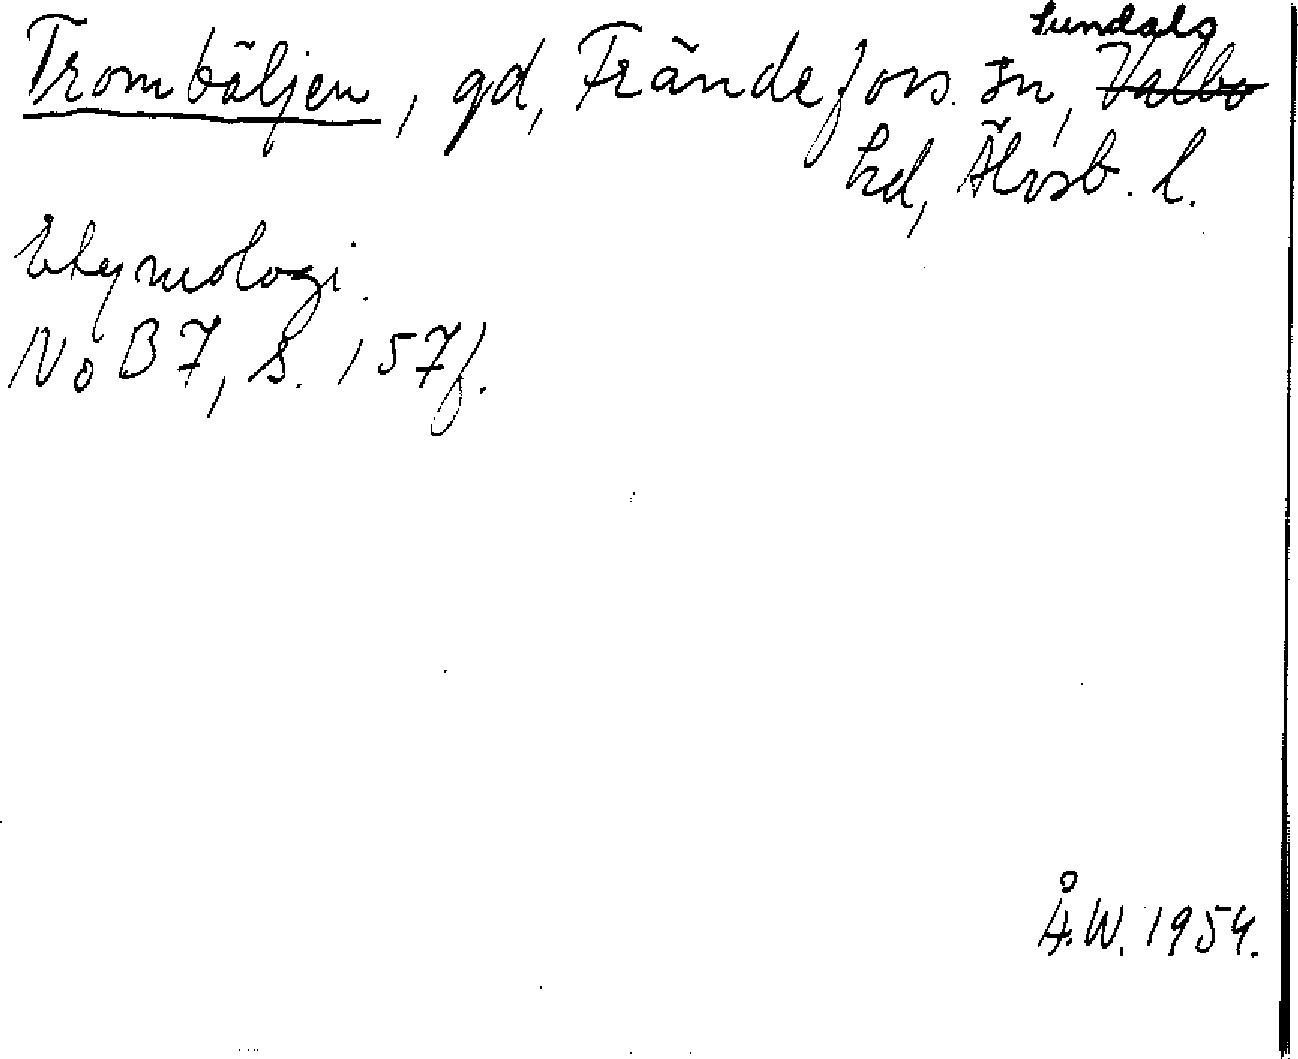 Sundals
Trombäljen, gd, Frändefors sn, Valbo
hd, Älvsb. l.
Etymologi.
NoB 7, s. 157f.
Å.W. 1954.